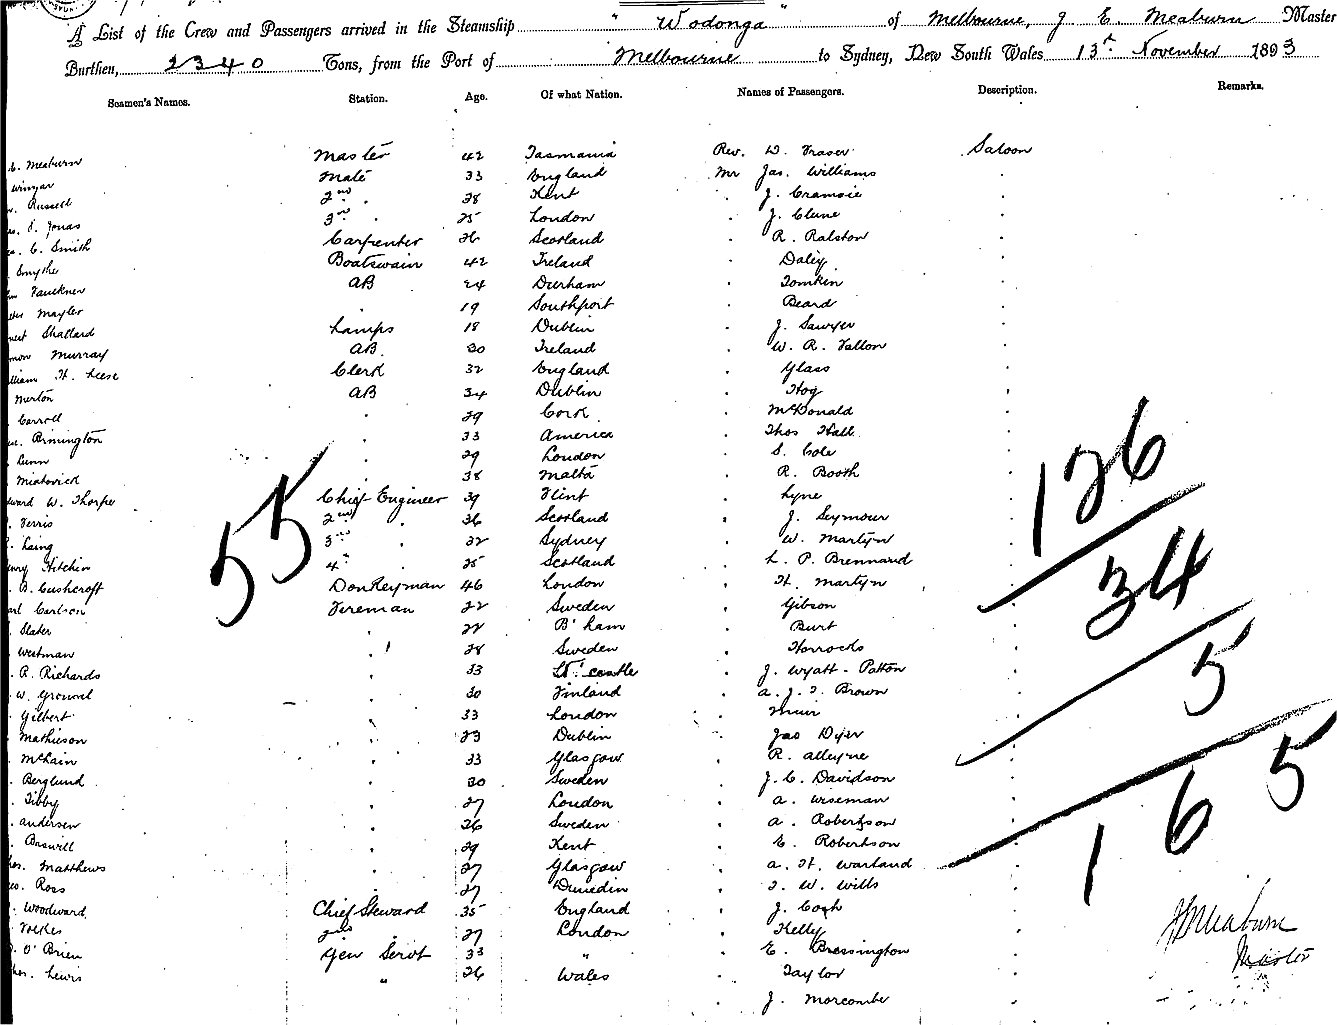 A List of the Crew and Passengers arrived in the Steamship "Wodonga" of Melbourne, J E. Meaburn Master
Burthen, 2340 Tons, from the Port of Melbourne to Sydney, New South Wales 13th November 1893
Seamen's Names. Station. Age. Of what Nation. Names of Passengers. Description. Remarks.
Meaburn Master 42 Tasmania Rev. D. Fraser Saloon
Winzar Mate 33 England Mr Jas. Williams
Russell 2nd 28 Kent J. Cramsie
Jonas 3rd 25 London J. Clune
C. Smith Carpenter 26 Scotland R. Ralston
Smythe Boatswain 42 Ireland Daley
Faulkner AB 24 Durham Tomkin
Mayler 19 Southport Beard
Shallard Lamps 18 Dublin J. Sawyer
Murray AB. 30 Ireland W. R. Fallon
lliam H. Leese Clerk 32 England Glass
Merton AB 34 Dublin Hog
Carroll 29 Cork McDonald
Armington 33 America Thos Hall
Lunn 29 London S. Cole
38 Malta R. Booth
ward W. Thorpe Chief Engineer 39 Flint Lyne
Ferris 2nd 36 Scotland J. Seymour
Laing 3rd 32 Sydney W. Martyn
Hitchin 4th 25 Scotland L. P. Brennard
B. Cushcroft Donkeyman 46 London H. Martyn
Carlson Fireman 22 Sweden Gibson
Slater 22 B'ham Burt
Westman 28 Sweden Horrocks
R. Richards 33 castle J. Wyatt-Patton
W. 30 Finland A. J. J. Brown
Gilbert 33 London Muir
Mathieson 23 Dublin Jas Dyer
McKain 33 Glasgow R. Alleyne
Berglund 30 Sweden J. C. Davidson
Tibby 27 London A. Wiseman
Andersen 26 Sweden A. Robertson
Baswill 29 Kent E. Robertson
Matthews 27 Glasgow A. H. Warland
Ross 27 Dunedin J. W. Wills
Woodward Chief Steward 35 England J. Cosh
2nd 27 London Kelly
O'Brien Gen Servt 33 " E. Bressington
Lewis " 26 Wales Taylor
J. Morcombe
55
126
34
5
165
J E Meaburn
Master